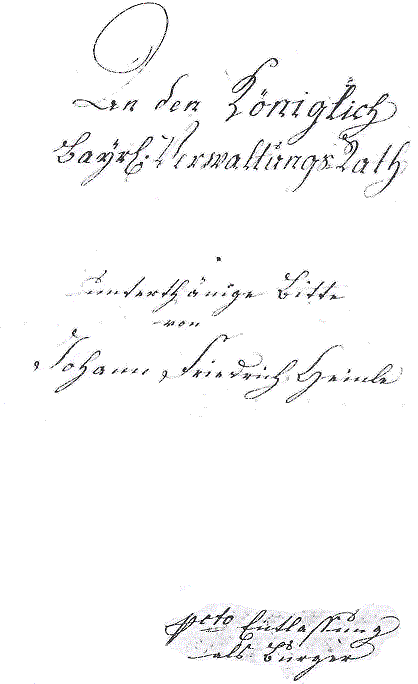 An den Königlich
Bayrl: Verwaltungs Rath
unterthänige Bitte
von
Johann Friedrich Heinle
pcto Entlassung
als Bürger